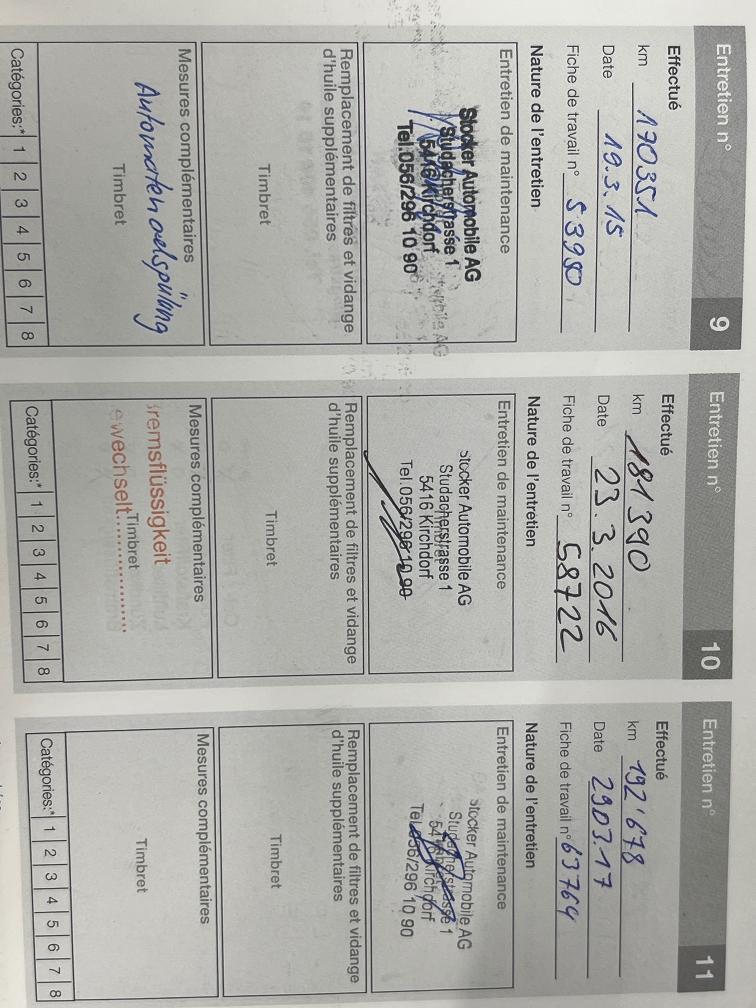 Entretien n° 9
Effectué
km 170351
Date 19.3.15
Fiche de travail n° 53980
Nature de l'entretien
Entretien de maintenance
Stocker Automobile AG
Studacherstrasse 1
5416 Kirchdorf
Tel. 056/296 10 90
Remplacement de filtres et vidange
d'huile supplémentaires
Timbret
Mesures complémentaires
Automatenoelspülung
Timbret
Catégories:* 1 2 3 4 5 6 7 8
Entretien n° 10
Effectué
km 181390
Date 23.3.2016
Fiche de travail n° 58722
Nature de l'entretien
Entretien de maintenance
Stocker Automobile AG
Studacherstrasse 1
5416 Kirchdorf
Tel. 056/296 10 90
Remplacement de filtres et vidange
d'huile supplémentaires
Timbret
Mesures complémentaires
remsflüssigkeit
ewechselt
Timbret
Catégories:* 1 2 3 4 5 6 7 8
Entretien n° 11
Effectué
km 192'678
Date 29.03.17
Fiche de travail n° 63764
Nature de l'entretien
Entretien de maintenance
Stocker Automobile AG
Studacherstrasse 1
5416 Kirchdorf
Tel. 056/296 10 90
Remplacement de filtres et vidange
d'huile supplémentaires
Timbret
Mesures complémentaires
Timbret
Catégories:* 1 2 3 4 5 6 7 8